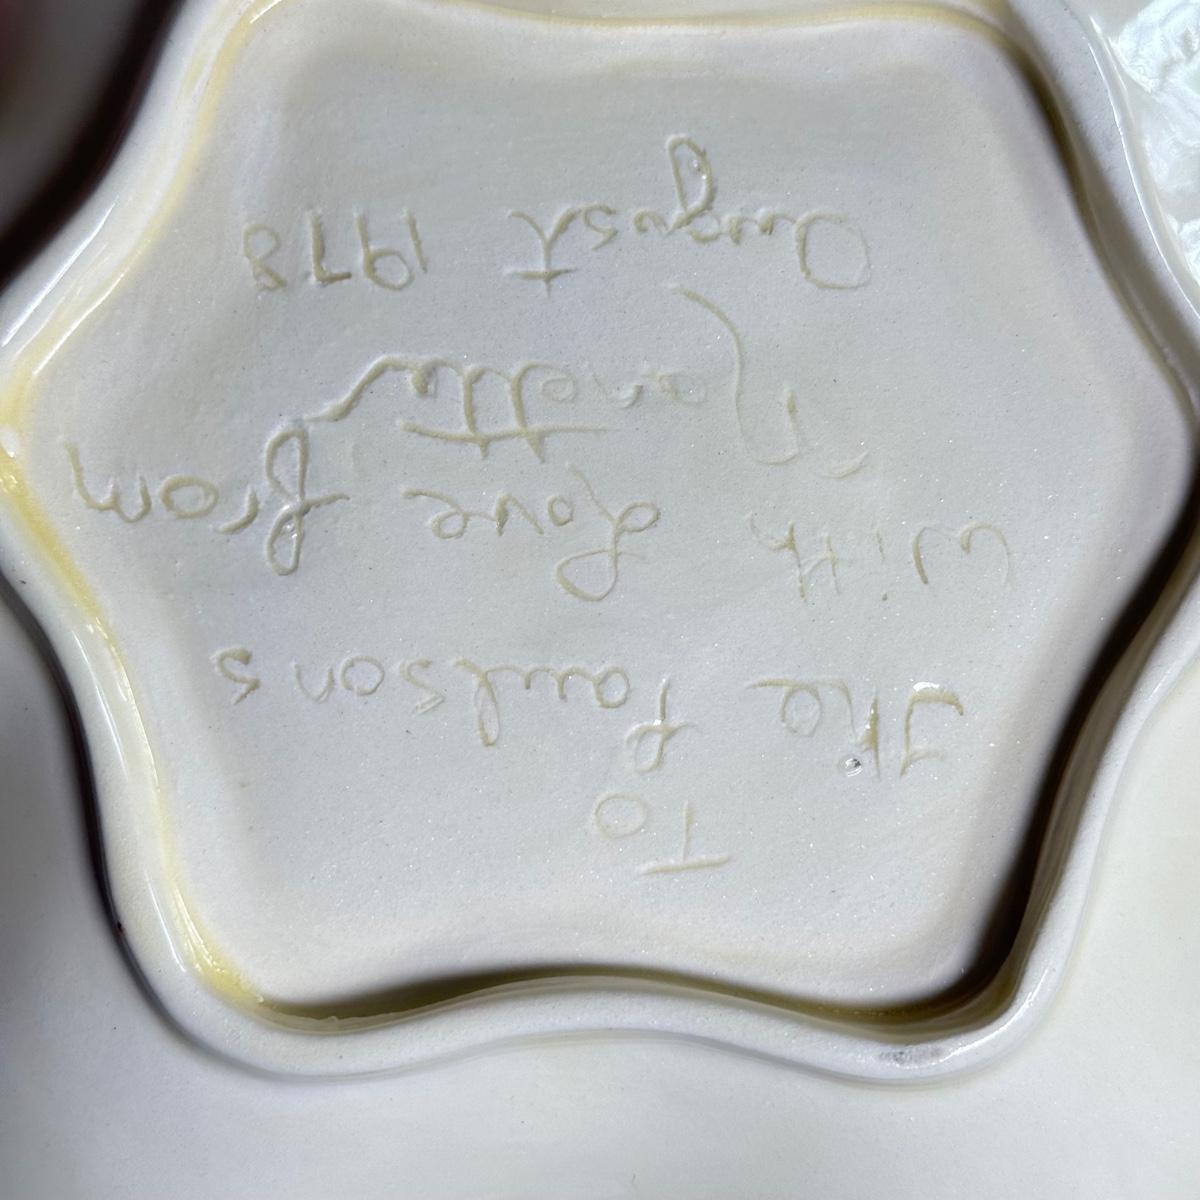 To
The Paulsons
With Love from
Nanette
August 1978